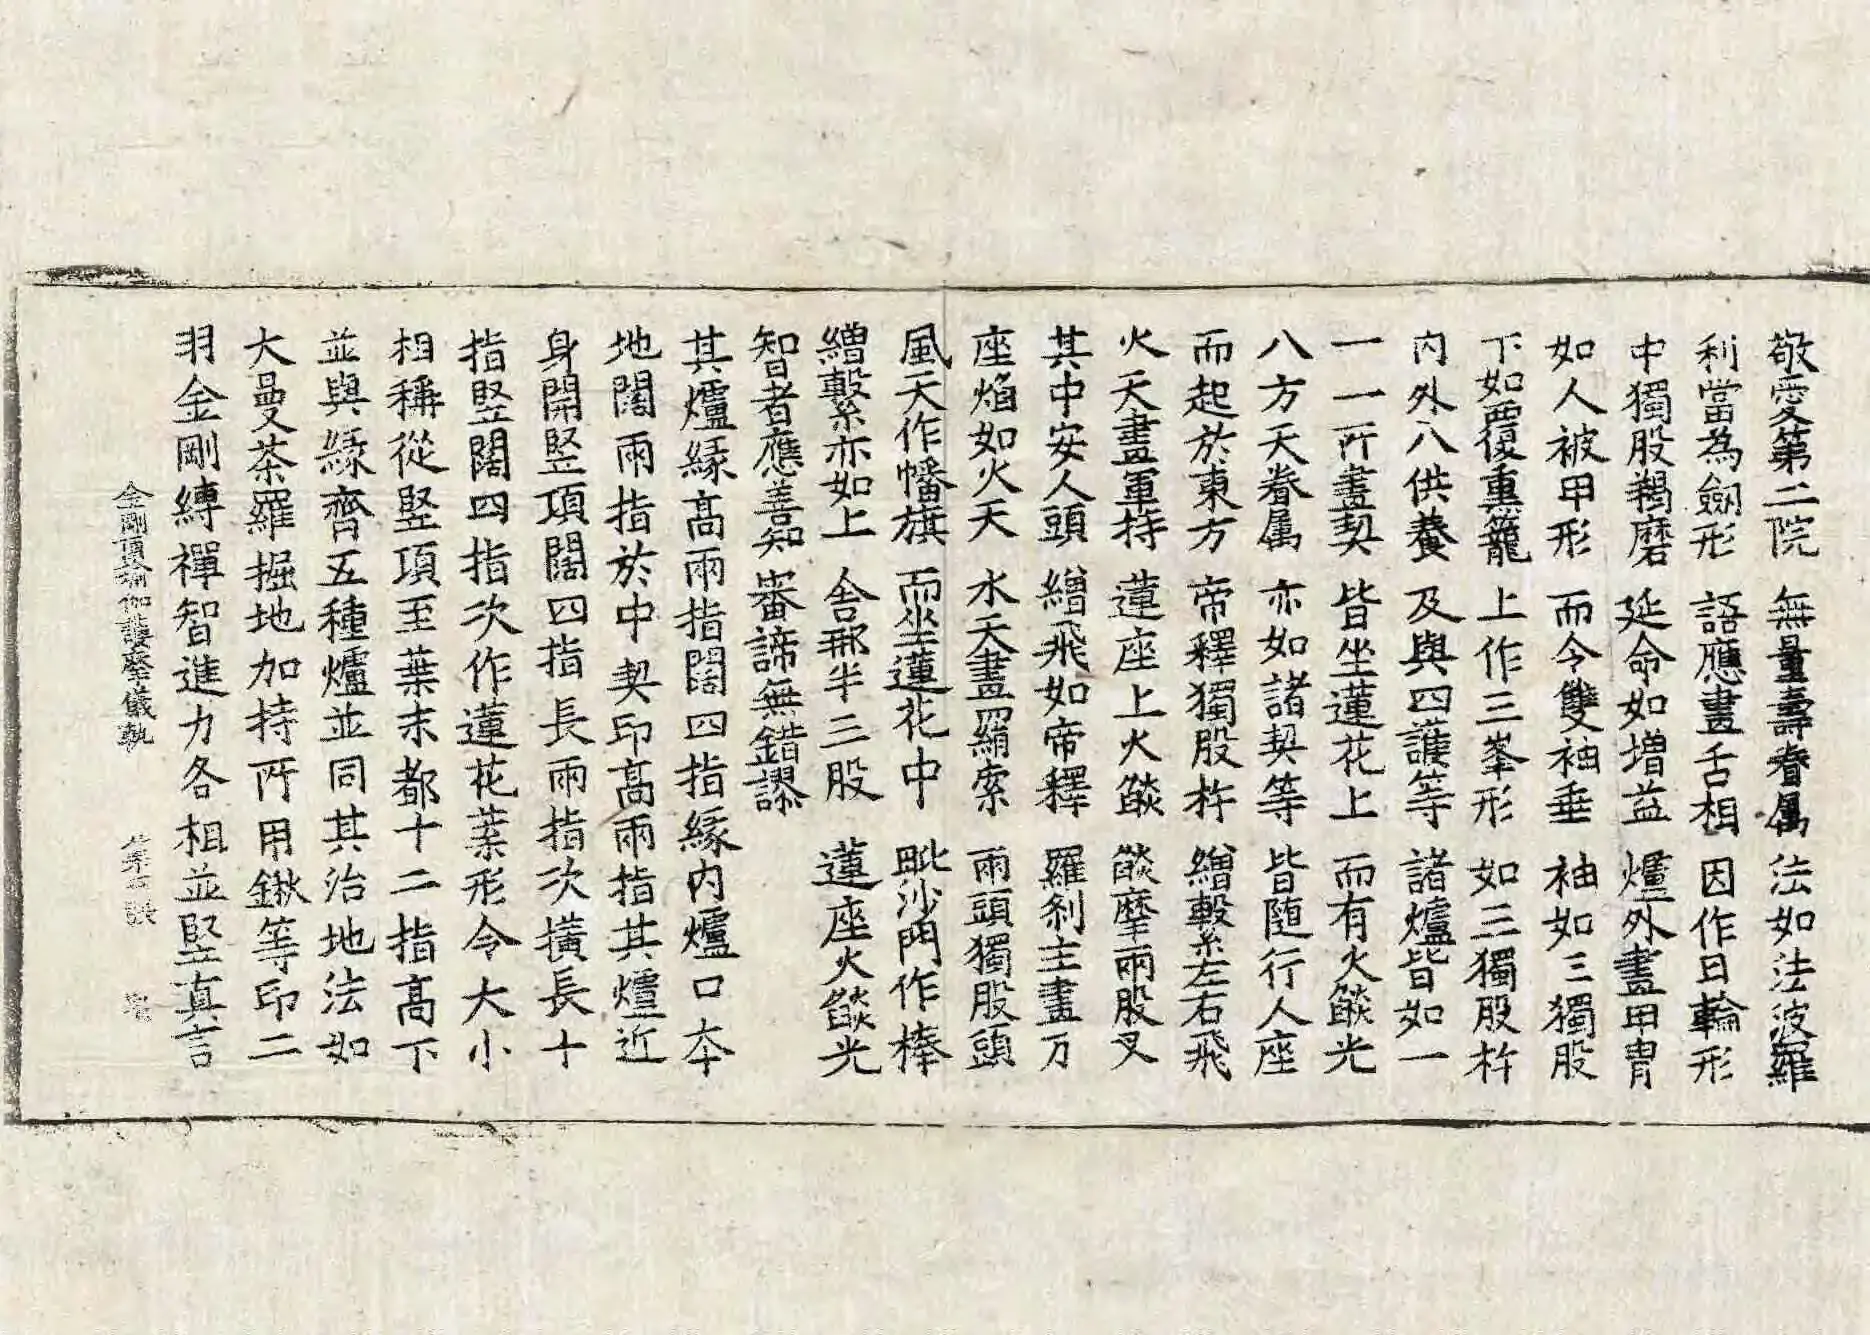 敬愛第二院 無量壽眷属 法如法波羅
利當為劔形 語應畫舌相 因作日輪形
中獨股羯磨 延命如增益 爐外畫甲冑
如人被甲形 而令雙袖垂 袖如三獨股
下如覆熏籠 上作三峯形 如三獨股杵
内外八供養 及與四護等 諸爐皆如一
一一所畫契 皆坐蓮花上 而有火燄光
八方天眷属 亦如諸契等 皆随行人座
而起於東方 帝釋獨股杵 繒繫左右飛
火天畫軍持 蓮座上火燄 燄摩兩股叉
其中安人頭 繒飛如帝釋 羅刹主畫刀
座焰如火天 水天畫羂索 兩頭獨股頭
風天作幡旗 而坐蓮花中 毗沙門作棒
繒繫亦如上 舍那半三股 蓮座火燄光
智者應善知 審諦無錯謬
其爐緣高兩指闊四指緣内爐口夲
地闊兩指於中契印高兩指其爐近
身開竪項闊四指長兩指次橫長十
指竪闊四指次作蓮花葉形令大小
相稱從竪項至葉末都十二指高下
並與緣齊五種爐並同其治地法如
大曼荼羅掘地加持所用鍬等印二
羽金剛縛禪智進力各相並竪真言
金剛頂瑜伽護摩儀軌